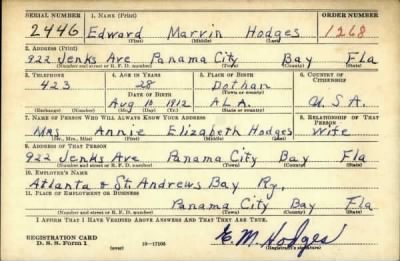 SERIAL NUMBER 1. NAME (Print) ORDER NUMBER
2446 Edward Marvin Hodges 1268
(First) (Middle) (Last)
2. ADDRESS (Print)
922 Jenks Ave Panama City Bay Fla
(Number and street or R. F. D. number) (Town) (County) (State)
3. TELEPHONE 4. AGE IN YEARS 5. PLACE OF BIRTH 6. COUNTRY OF CITIZENSHIP
423 28 Dothan
(Town or county)
DATE OF BIRTH
Aug 10 1912 ALA. U.S.A.
(Exchange) (Number) (Mo.) (Day) (Yr.) (State or country)
7. NAME OF PERSON WHO WILL ALWAYS KNOW YOUR ADDRESS 8. RELATIONSHIP OF THAT PERSON
Mrs Annie Elizabeth Hodges Wife
(Mr., Mrs., Miss) (First) (Middle) (Last)
9. ADDRESS OF THAT PERSON
922 Jenks Ave Panama City Bay Fla
(Number and street or R. F. D. number) (Town) (County) (State)
10. EMPLOYER'S NAME
Atlanta & St. Andrews Bay Ry.
11. PLACE OF EMPLOYMENT OR BUSINESS
Panama City Bay Fla
(Number and street or R. F. D. number) (Town) (County) (State)
I AFFIRM THAT I HAVE VERIFIED ABOVE ANSWERS AND THAT THEY ARE TRUE.
REGISTRATION CARD
D. S. S. Form 1 (over) 16-17105 E. M. Hodges
(Registrant's signature)